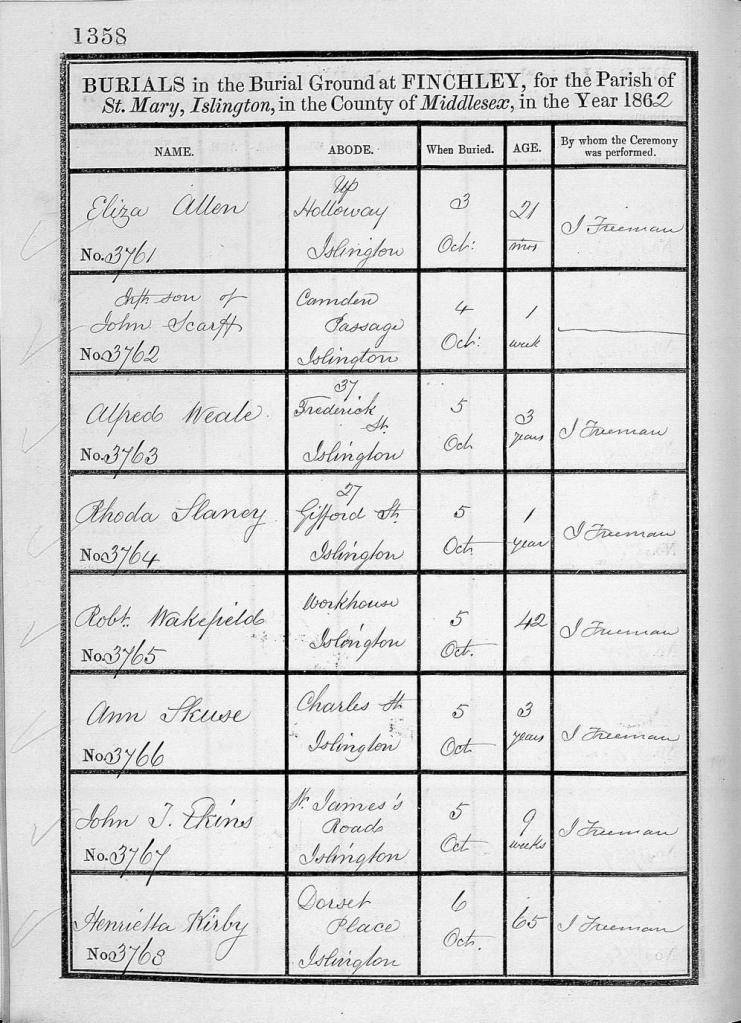 1358
BURIALS in the Burial Ground at FINCHLEY, for the Parish of
St. Mary, Islington, in the County of Middlesex, in the Year 1862
NAME. ABODE. When Buried. AGE. By whom the Ceremony was performed.
Eliza Allen
No. 3761
Up
Holloway
Islington
3
Oct:
21
mos
J Freeman
Inft son of
John Scarff
No. 3762
Camden
Passage
Islington
4
Oct:
1
week
Alfred Weale
No. 3763
37
Frederick
St.
Islington
5
Oct
3
years
J Freeman
Rhoda Slaney
No. 3764
27
Gifford St.
Islington
5
Oct.
1
year
J Freeman
Robt. Wakefield
No. 3765
Workhouse
Islington
5
Oct.
42
J Freeman
Ann Skuse
No. 3766
Charles St.
Islington
5
Oct
3
years
J Freeman
John T. Ekins
No. 3767
St. James's
Road
Islington
5
Oct
9
weeks
J Freeman
Henrietta Kirby
No. 3768
Dorset
Place
Islington
6
Oct.
65
J Freeman